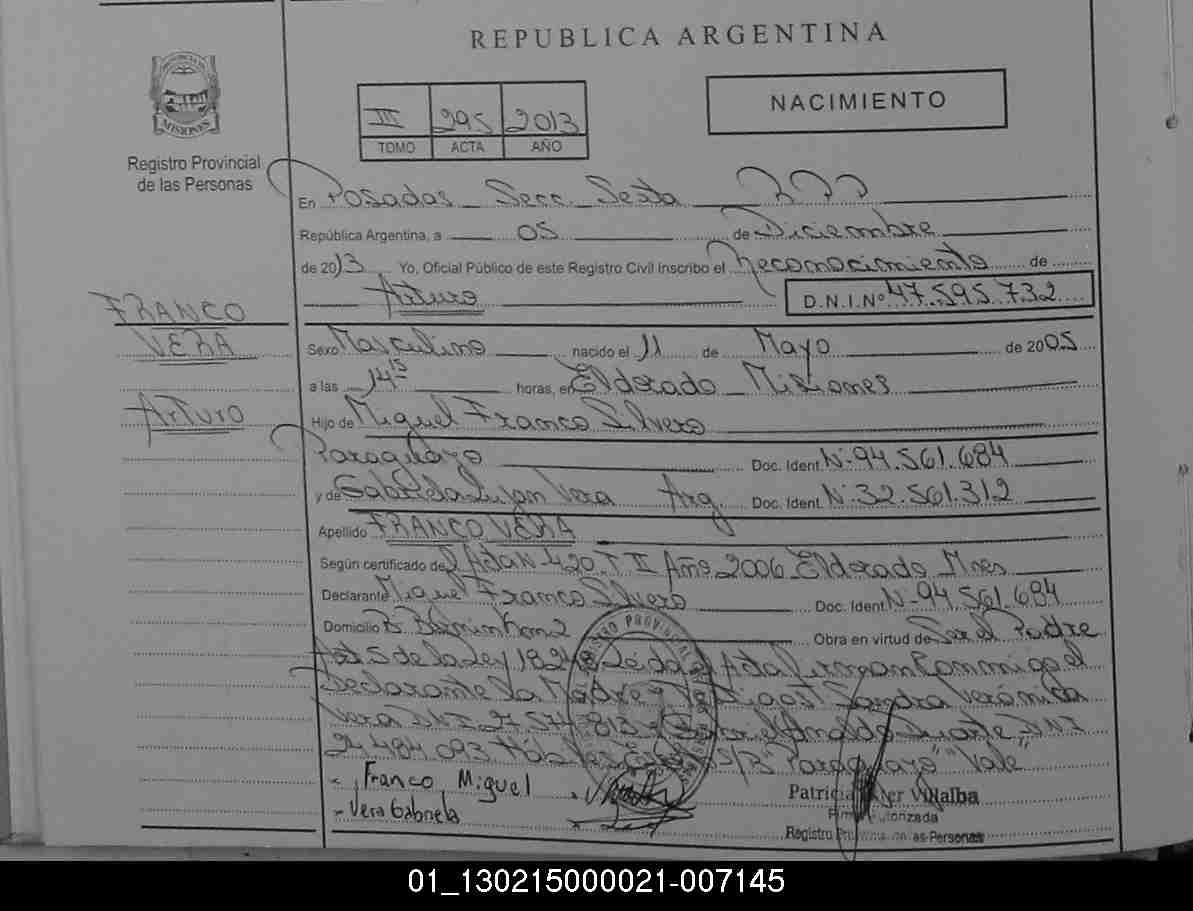 REPUBLICA ARGENTINA
PROVINCIA DE
MISIONES
Registro Provincial
de las Personas
III 295 2013
TOMO ACTA AÑO
NACIMIENTO
En Posadas Secc. Sexta
República Argentina, a 05 de Diciembre
de 2013 Yo, Oficial Público de este Registro Civil inscribo el Reconocimiento de
Arturo D.N.I.Nº 47.595.732
FRANCO
VERA
Arturo
Sexo Masculino nacido el 11 de Mayo de 2005
a las 14 15 horas, en Eldorado Misiones
Hijo de Miguel Franco Silvero
Paraguayo Doc. Ident. Nº 94.561.684
y de Gabriela Lujan Vera Arg. Doc. Ident. Nº 32.561.312
Apellido FRANCO VERA
Según certificado de Acta Nº 420 T II Año 2006 Eldorado Mnes
Declarante Miguel Franco Silvero Doc. Ident. Nº 94.561.684
Domicilio Bº Km 2 Obra en virtud de Ser el Padre
Art 5 de la Ley 18248 Leída el Acta Firman Conmigo el
Declarante la Madre y Testigos Sandra Verónica
Vera DNI 27.574.813 y Duarte DNI
24.484.093 S/B "Paraguayo" "Vale"
- Franco Miguel
- Vera Gabriela
Patricia Villalba
Firma Autorizada
Registro Provincial de las Personas
01_130215000021-007145